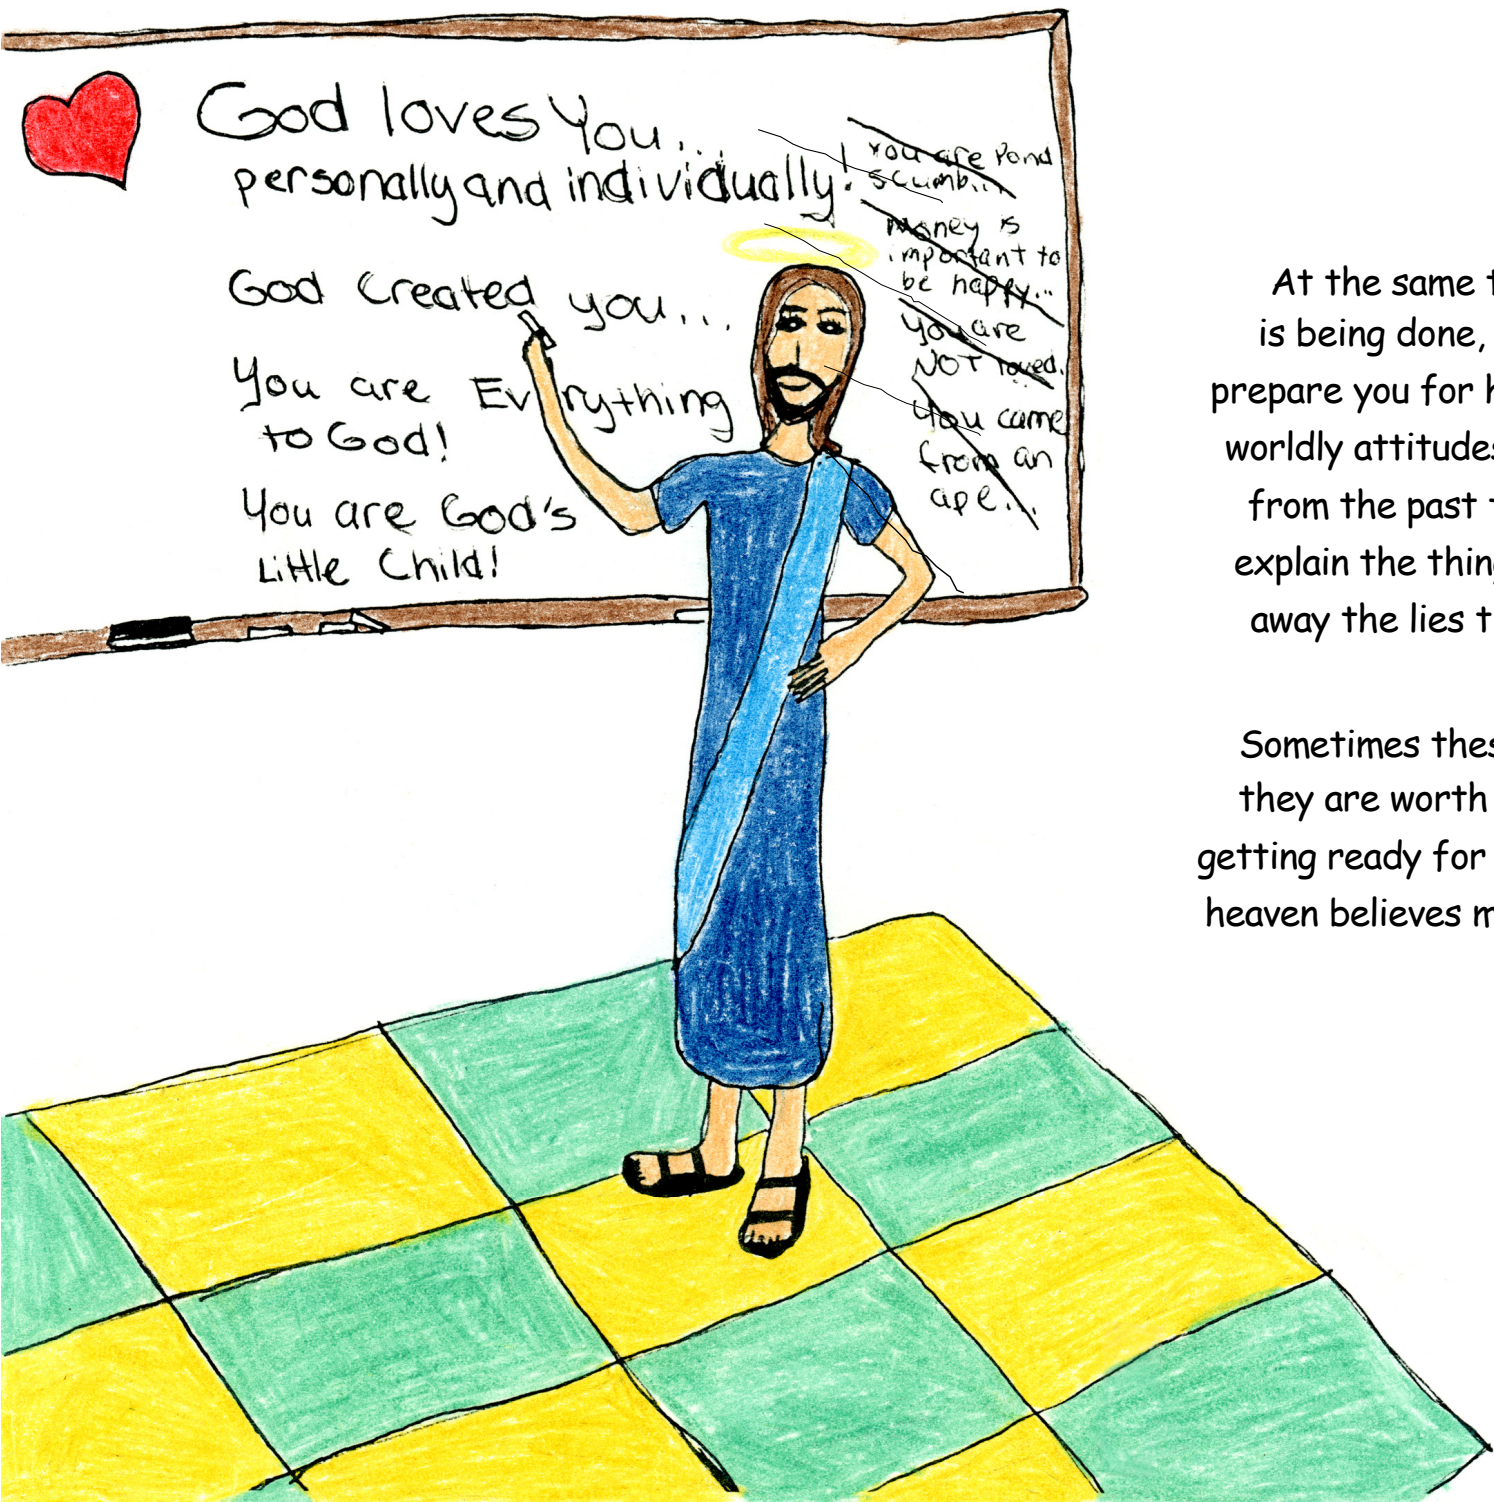 God loves You...
personally and individually!
God Created you...
You are Everything
to God!
You are God's
Little Child!
You are Pond
scumb...
money is
important to
be happy...
You are
NOT loved.
You came
from an
ape...
At the same t
is being done,
prepare you for h
worldly attitudes
from the past t
explain the thing
away the lies t
Sometimes thes
they are worth
getting ready for
heaven believes m